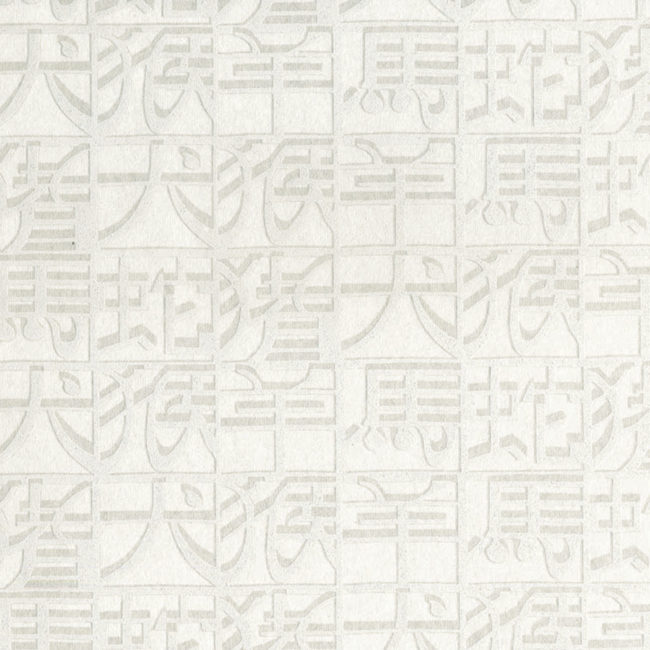 犬猴羊馬蛇猪
猪犬猴羊馬蛇
馬蛇猪犬猴羊
犬猴羊馬蛇猪
猪犬猴羊馬蛇
馬蛇猪犬猴羊